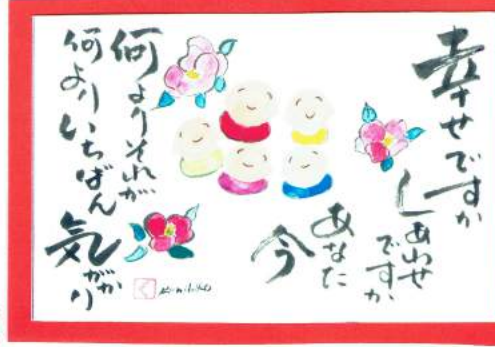 幸せですか
しあわせ
ですか
あなた
今
何よりそれが
何よりいちばん
気がかり